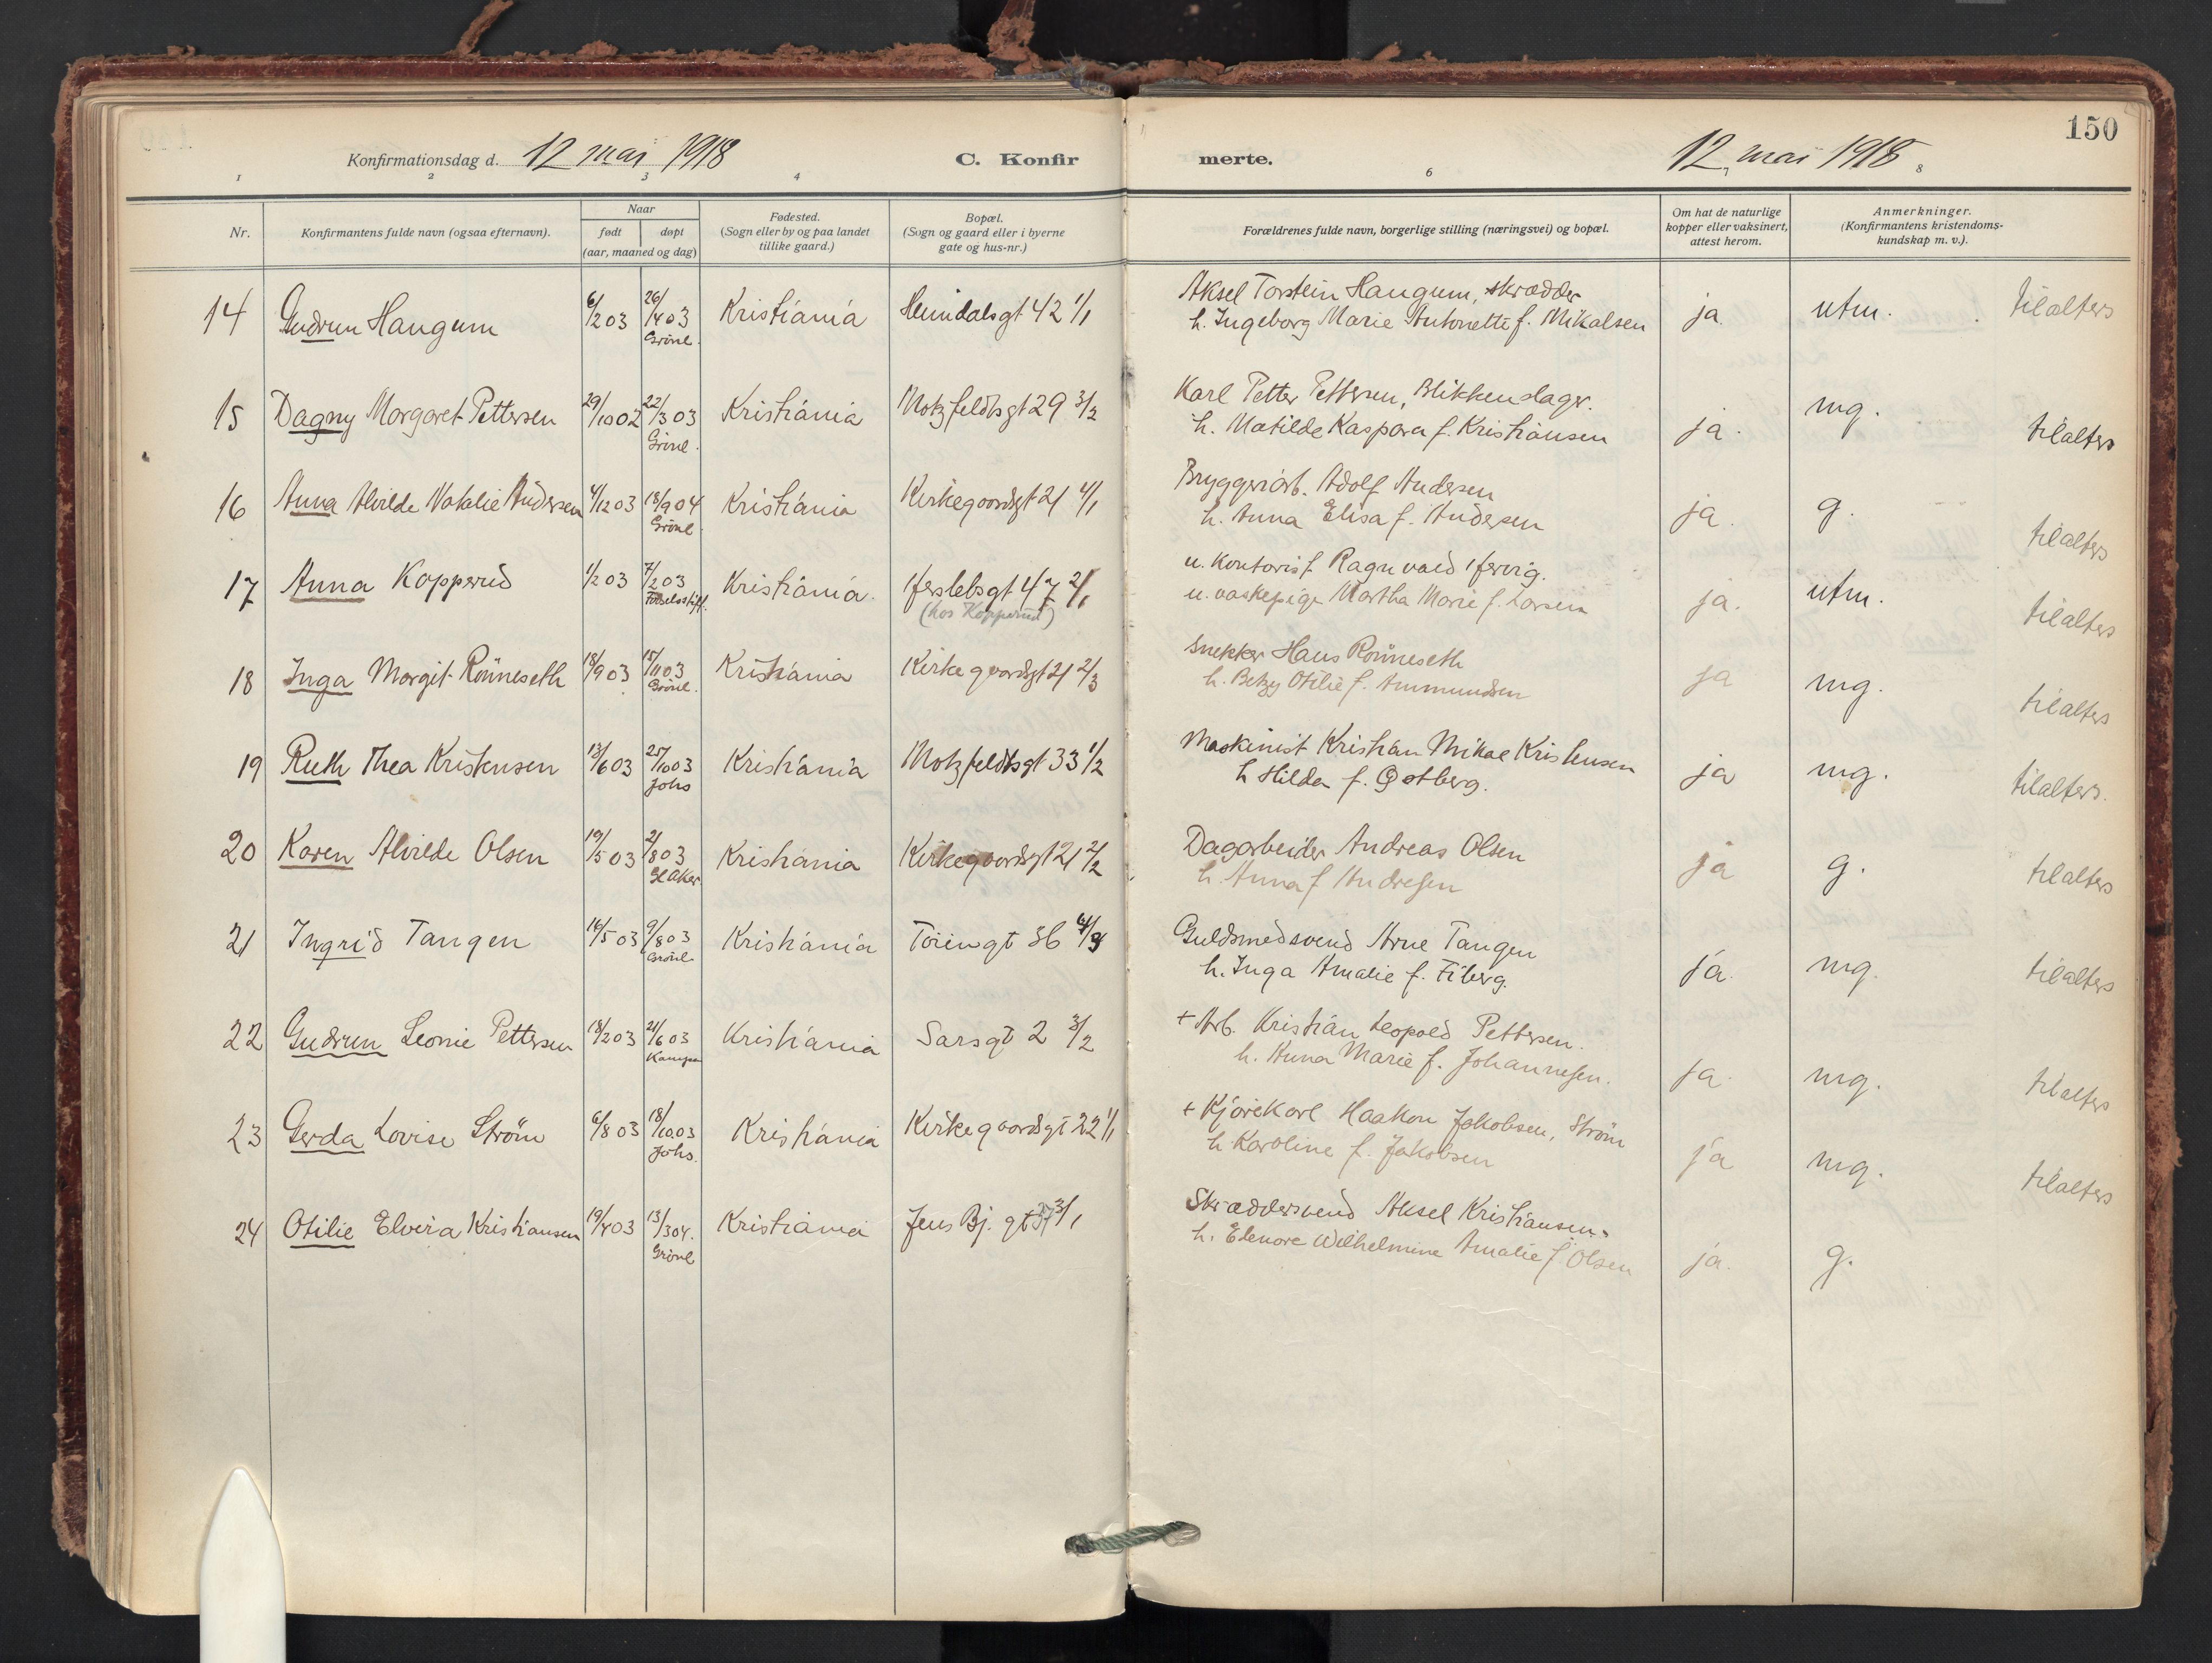 150
Konfirmationsdag d. 12 mai 1918 C. Konfirmerte. 12 mai 1918
1 2 3 4 6 7 8
Nr. Konfirmantens fulde navn (ogsaa efternavn). Naar født døpt (aar, maaned og dag) Fødested. (Sogn eller by og paa landet tillike gaard.) Bopæl. (Sogn og gaard eller i byerne gate og hus-nr.) Forældrenes fulde navn, borgerlige stilling (næringsvei) og bopæl. Om hat de naturlige kopper eller vaksinert, attest herom. Anmerkninger. (Konfirmantens kristendomskundskap m. v.).
14 Gudrun Haugum 6/2 03 26/4 03 Grönl. Kristiania Heimdalsgt 42 1/1 Aksel Torstein Haugum, skrædder ja. utm. tilalters
h. Ingeborg Marie Antonette f. Mikalsen
15 Dagny Margaret Pettersen 29/10 02 22/3 03 Grönl. Kristiania Motzfeldtsgt 29 3/2 Karl Petter Pettersen, Blikkenslager. ja. mg. tilalters
h. Matilde Kaspara f. Kristiansen
16 Anna Alvilde Natalie Andersen 4/12 03 18/9 04 Grönl. Kristiania Kirkegaardsgt 21 4/1 Bryggeriarb. Adolf Andersen ja. g. tilalters
h. Anna Elisa f. Andersen
17 Anna Kopperud 1/2 03 7/2 03 Födselsstift. Kristiania. Herslebsgt 47 2/1 (hos Kopperud) u. kontorist Ragnvald ja. utm. tilalters
u. vaskepige Martha Marie f. Larsen
18 Inga Margit Rönneseth 18/9 03 15/11 03 Grönl. Kristiania Kirkegaardsgt 21 2/3 Snekker Hans Rönneseth ja mg. tilalters
h. Betzy Otilie f. Ammundsen
19 Ruth Thea Kristensen 13/6 03 25/10 03 Johs Kristiania Motzfeldtsgt 33 1/2 Maskinist Kristian Mikal Kristensen ja mg. tilalters.
h Hilda f. Østberg.
20 Karen Alvilde Olsen 19/5 03 2/8 03 Gl Aker Kristiania Kirkegaardsgt 21 2/2 Dagarbeider Andreas Olsen ja g. tilalters
h. Anna f Andresen
21 Ingrid Tangen 16/5 03 9/8 03 Grönl. Kristiania Töiengt 36 Guldsmedsvend Arne Tangen ja. mg. tilalters
h. Inga Amalie f. Fiberg.
22 Gudrun Leonie Pettersen 18/2 03 21/6 03 Kampen Kristiania Sarsgt 2 3/2 + Arb. Kristian Leopold Pettersen. ja. mg. tilalters
h. Anna Marie f. Johannesen.
23 Gerda Lovise Ström 6/8 03 18/10 03 Johs. Kristiania Kirkegaardsgt 22 1/1 + Kjörekarl Haakon Jakobsen, Ström ja mg. tilalters
h Karoline f. Jakobsen
24 Otilie Elvira Kristiansen 19/4 03 13/3 04. Grönl Kristiania Jens Bj. gt 3/1 Skræddersvend Aksel Kristiansen. ja. g.
h. Elenore Wilhelmine Amalie f. Olsen